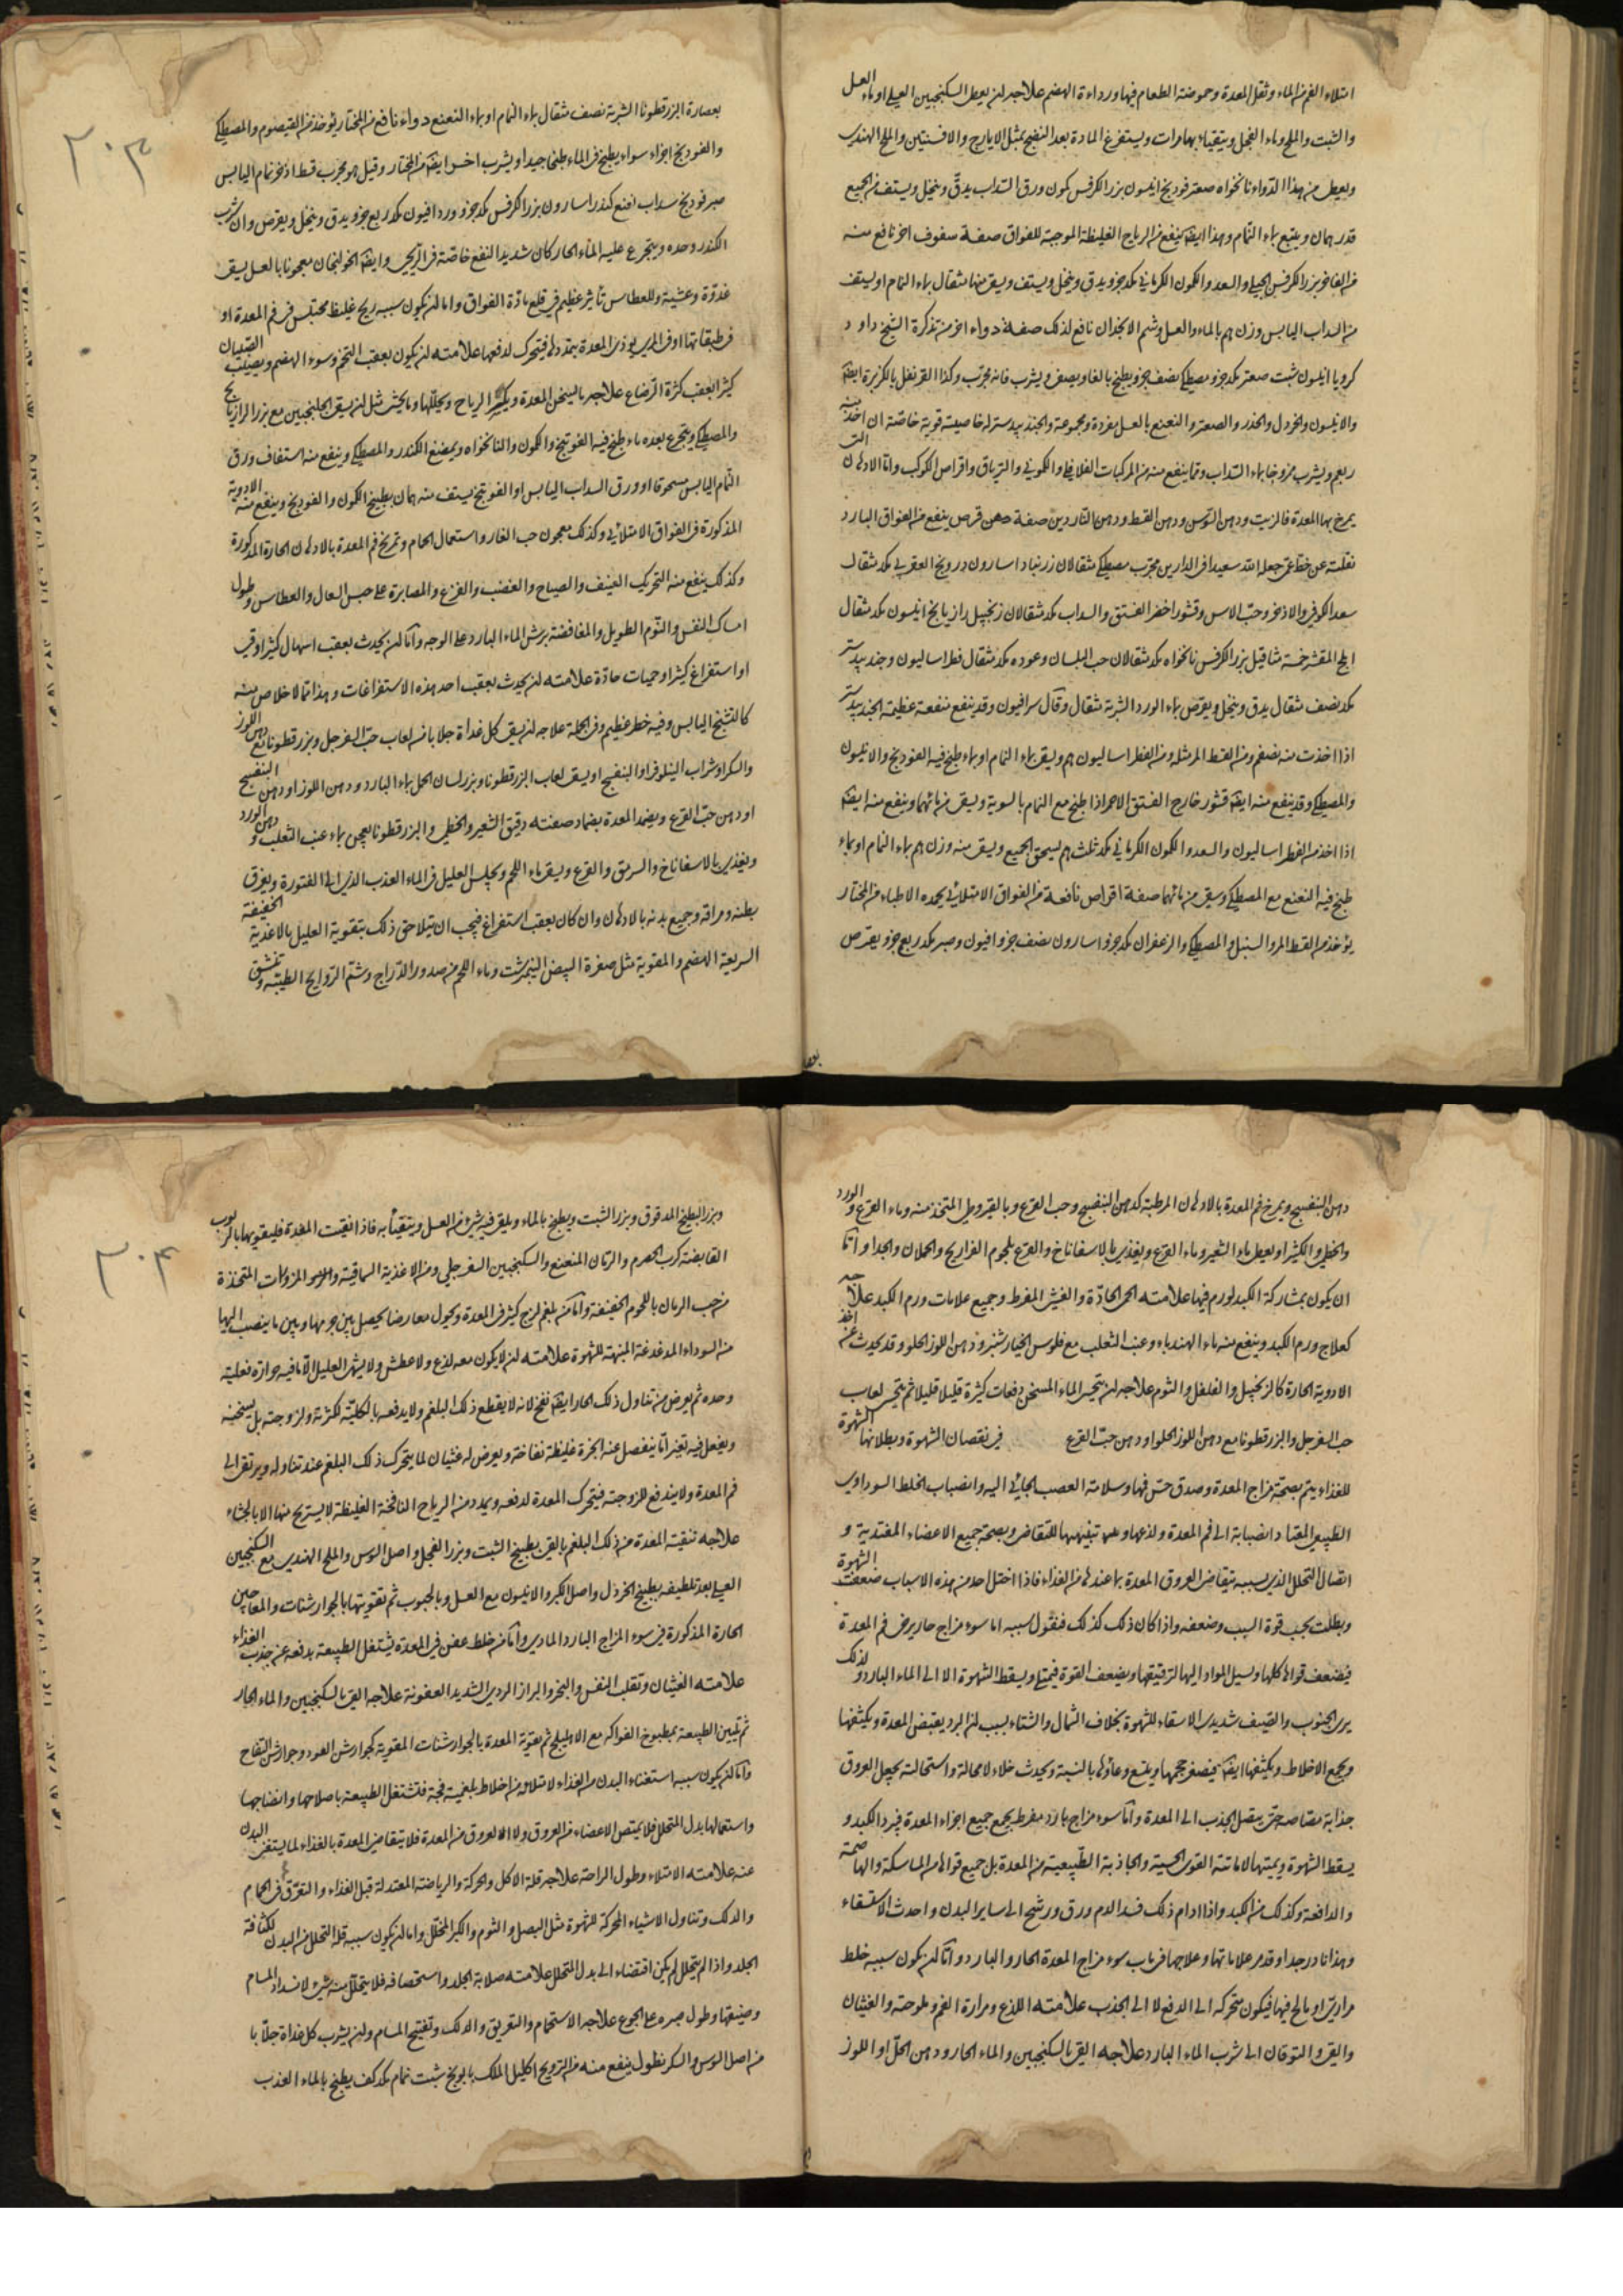 امتلاء الفم من الماء وثقل المعدة وحموضة الطعام فيها ورداءة الهضم علاجه ان يعطى السكنجبين العسلي او ماء العسل
والشبت والملح وماء الفجل ويتقيأ بها مرات ويستفرغ المادة بعد النضج بمثل الايارج والافسنتين والملح الهندي
ويعطى من هذا الدواء نانخواه صعتر فودنج انيسون بزر الكرفس كمون ورق السداب يدق وينخل ويستف من الجميع
قدر همان ويتبع بماء النمام وهذا ايضا ينفع من الرياح الغليظة الموجبة للفواق صفة سفوف اخر نافع منه
بزر الكرفس الجبلي والسعد والكمون الكرماني مكد جزو يدق وينخل ويستف ويسقى منها مثقال بماء النمام او يستف
من السداب اليابس وزن هم بالماء والعسل وشم الانجدان نافع لذلك صفة دواء اخر من تذكرة الشيخ داود
كرويا انيسون شبت صعتر مكد جزو مصطكي نصف جزو يطبخ بالغا ويصفى ويشرب فانه مجرب وكذا القرنفل بالكزبرة ايضا
والانيسون والخردل والجزر والصعتر والنعنع بالعسل مفردة ومجموعة والجندبيدستر له خاصية قوية خاصة ان اخذ منه
ربعم ويشرب ممزوجا بماء السداب ومما ينفع منه من المركبات الفلافلي والكموني والترياق واقراص الكوكب واما الادهان التي
يمرخ بها المعدة فالزيت ودهن السوسن ودهن القسط ودهن الناردين صفة قرص ينفع من الفواق البارد
نقلته عن خط عمي جعله الله سعيدا في الدارين مجرب مصطكي مثقالان زرنباد اسارون درونج العقربي مكد مثقال
سعد الكوفي والاذخر وحب الاس وقشور اخضر الفستق والسداب مكد مثقالان زنجبيل رازيانج انيسون مكد مثقال
المقشر خمسة مثاقيل بزر الكرفس نانخواه مكد مثقالان حب البلسان وعوده مكد مثقال فطراساليون وجندبيدستر
مكد نصف مثقال يدق وينخل ويقرص بماء الورد الشربة مثقال وقال سرافيون وقد ينفع منفعة عظيمة الجندبيدستر
اذا اخذت منه نصفهم ومن القسط المر مثله ومن الفطراساليون هم ويسقى بماء النمام او بماء طبخ فيه الفودنج والانيسون
والمصطكي وقد ينفع منه ايضا قشور خارج الفستق الاحمر اذا طبخ مع النمام بالسوية وسقى من مائهما وينفع منه ايضا
اذا اخذ من الفطراساليون والسعد والكمون الكرماني مكد ثلث هم يسحق الجميع ويسقى منه وزن هم بماء النمام او بماء
طبخ فيه النعنع مع المصطكي وسقى من مائهما صفة اقراص نافعة من الفواق الامتلائي يحمده الاطباء من المختار
يؤخذ من القسط المر والسنبل والمصطكي والزعفران مكد جزو اسارون نصف جزو افيون وصبر مكد ربع جزو يقرص
٣٠٣
بعصارة البزرقطونا الشربة نصف مثقال بماء النمام او بماء النعنع دواء نافع من المختار يؤخذ من القيصوم والمصطكي
والفودنج اجزاء سواء يطبخ في الماء طبخا جيدا ويشرب اخر ايضا من المختار وقيل هو مجرب قسط اذخر نمام اليابس
صبر فودنج سداب نعنع كندر اسارون بزر الكرفس مكد جزو ورد افيون مكد ربع جزو يدق وينخل ويقرص وان شرب
الكندر وحده ويتجرع عليه الماء الحار كان شديد النفع خاصة في الريحي وايضا الخولنجان معجونا بالعسل يسقى
غدوة وعشية وللعطاس تأثير عظيم في قلع مادة الفواق واما ان يكون سببه ريح غليظ محتبس في فم المعدة او
في طبقاتها او في المري يوذى المعدة بتمدده فيتحرك لدفعها علامته ان يكون بعقب التخم وسوء الهضم ويصيب الصبيان
كثيرا بعقب كثرة الرضاع علاجه بما يسخن المعدة ويكسر الرياح ويحللها وما يجشي مثل ان يسقى الجلنجبين مع بزر الرازيانج
والمصطكي ويتجرع بعده ماء طبخ فيه الفوتنج والكمون والنانخواه ويمضغ الكندر والمصطكي وينفع منه استفاف ورق
النمام اليابس مسحوقا او ورق السداب اليابس او الفوتنج يستف منه همان بطبيخ الكمون والفودنج وينفع منه الادوية
المذكورة في الفواق الامتلائي وكذلك معجون حب الغار واستعمال الحمام وتمريخ فم المعدة بالادهان الحارة المذكورة
وكذلك ينفع منه التحريك العنيف والصياح والغضب والفزع والمصابرة على حبس السعال والعطاس وطول
امساك النفس والنوم الطويل والمغافصة برش الماء البارد على الوجه واما ان يحدث بعقب اسهال كثير او قي
او استفراغ كثير او حميات حادة علامته ان يحدث بعقب احد هذه الاستفراغات وهذا مما لا خلاص منه
كالتشنج اليابس وفيه خطر عظيم وفي الجملة علاجه ان يسقى كل غداة جلابا من لعاب حب السفرجل وبزر قطونا مع دهن اللوز
والسكر او شراب النيلوفر او البنفسج او يسقى لعاب البزرقطونا وبزر لسان الحمل بماء البارد ودهن اللوز او دهن البنفسج
او دهن حب القرع ويضمد المعدة بضماد صفته دقيق الشعير والخطمي والبزرقطونا يعجن بماء عنب الثعلب ودهن الورد
ويغذى بالاسفاناخ والسرمق والقرع ويسقى ماء اللحم ويجلس العليل في الماء العذب الذي الى الفتورة ويعرق
بطنه ومراقه وجميع بدنه بالادهان وان كان بعقب استفراغ فيجب ان يتلاحق ذلك بتقوية العليل بالاغذية الخفيفة
السريعة الهضم والمقوية مثل صفرة البيض النيمرشت وماء اللحم من صدور الدراج وشم الروايح الطيبة وتنشق
دهن البنفسج ويمرخ فم المعدة بالادهان المرطبة كدهن البنفسج وحب القرع وبالقيروطي المتخذ منه وماء القرع والورد
والخطمي والكثيرا ويعطى ماء الشعير وماء القرع ويغذى بالاسفاناخ والقرع بلحوم الفراريج والحملان والجدا واما
ان يكون بمشاركة الكبد لورم فيها علامته الحمى الحادة والغشي المفرط وجميع علامات ورم الكبد علاجه
كعلاج ورم الكبد وينفع منه ماء الهندباء وعنب الثعلب مع فلوس الخيارشنبر ودهن اللوز الحلو وقد يحدث عن اخذ
الادوية الحارة كالزنجبيل والفلفل والثوم علاجه ان يتحسى الماء المسخن دفعات كثيرة قليلا قليلا ثم يتحسى لعاب
حب السفرجل والبزرقطونا مع دهن اللوز الحلو او دهن حب القرع في نقصان الشهوة وبطلانها الشهوة
للغذاء يتم بصحة مزاج المعدة وصدق حس فمها وسلامة العصب الجائي اليه وانصباب الخلط السوداوي
الطبيعي المعتاد انصبابه الى فم المعدة ولذعها وتنبيهها للتقاضي وبصحة جميع الاعضاء المغتدية و
اتصال التحلل الذي بسببه يتقاضى العروق المعدة بما عندها من الغذاء فاذا اختل احد من هذه الاسباب ضعفت الشهوة
وبطلت بحسب قوة السبب وضعفه واذا كان ذلك كذلك فنقول سببه اما سوء مزاج حار يرخى فم المعدة
فيضعف قواها كلها ويسيل المواد اليها لترقيقها ويضعف القوة فيمتلي ويسقط الشهوة الا الى الماء البارد ولذلك
يرى الجنوب والصيف شديدي الاسقاء للشهوة بخلاف الشمال والشتاء بسبب ان البرد يقبض المعدة ويكثفها
ويجمع الاخلاط ويكثفها ايضا فيصغر حجمها ويتسع وعاؤها بالنسبة ويحدث خلاء لا محالة واستحالته يجعل العروق
جذابة مصاصة حتى يتصل الجذب الى المعدة واما سوء مزاج بارد مفرط يجمع جميع اجزاء المعدة فيبرد الكبد و
يسقط الشهوة ويميتها لاماتته القوى الحسية والجاذبة الطبيعية من المعدة بل جميع قواها من الماسكة والهاضمة
والدافعة وكذلك من الكبد واذا دام ذلك فسد الدم ورق ورشح الى ساير البدن واحدث الاستسقاء
وهذا نادر جدا وقد مر علاماتها وعلاجها في باب سوء مزاج المعدة الحار والبارد واما ان يكون سببه خلط
مراري او مالح فيها فيكون متحركه الى الدفع لا الى الجذب علامته اللذع ومرارة الفم وملوحته والغثيان
والقي والتوقان الى شرب الماء البارد علاجه القي بالسكنجبين والماء الحار ودهن الحل او اللوز
٣٠٤
وبزر البطيخ المدقوق وبزر الشبت ويطبخ بالماء ويلقى فيه شيء من العسل ويتقيأ به فاذا نقيت المعدة فليقويها بالربوب
القابضة كرب الحصرم والرمان المنعنع والسكنجبين السفرجلي ومن الاغذية السماقية والمزورات المتخذة
من حب الرمان باللحوم الخفيفة واما من بلغم لزج كثير في المعدة ويحول معارضا يحصل بين جرمها وبين ما ينصب اليها
من السوداء المدغدغة المنبهة للشهوة علامته ان لا يكون معه لذع ولا عطش ولا يشتهي العليل الا ما فيه حرارة فعلية
وحده ثم يعرض من تناول ذلك الحار ايضا نفخ لانه لا يقطع ذلك البلغم ولا يدفعه بالكلية لكثرته ولزوجته بل يسخنه
ويفعل فيه تغيرا ما ينفصل عنه ابخرة غليظة نفاخة ويعرض له غثيان لما يتحرك ذلك البلغم عند تناوله ويرتقي الى
فم المعدة ولا يندفع للزوجته فيتحرك المعدة لدفعه ويمدد منه الرياح النافخة الغليظة لا يستريح منها الا بالجشاء
علاجه تنقية المعدة من ذلك البلغم بالقي بطبيخ الشبت وبزر الفجل واصل السوس والملح الهندي مع السكنجبين
العسلي بعد تلطيفه بطبيخ الخردل واصل الكبر والانيسون مع العسل وبالحبوب ثم تقويتها بالجوارشنات والمعاجين
الحارة المذكورة في سوء المزاج البارد المادي واما من خلط عفن في المعدة يشتغل الطبيعة بدفعه عن جذب الغذاء
علامته الغثيان وتقلب النفس والبخر والبراز الردي الشديد العفونة علاجه القي بالسكنجبين والماء الحار
ثم تليين الطبيعة بمطبوخ الفواكه مع الاهليلج ثم تقوية المعدة بالجوارشنات المقوية كجوارشن العود وجوارشن التفاح
واما ان يكون سببه استغناء البدن من الغذاء لامتلائه من اخلاط بلغمية فجة فتشتغل الطبيعة باصلاحها وانضاجها
واستعمالها بدل المتحلل فلا يمتص الاعضاء من العروق ولا العروق من المعدة فلا يتقاضى المعدة بالغذاء لما يستغنى البدن
عنه علامته الامتلاء وطول الراحة علاجه قلة الاكل والحركة والرياضة المعتدلة قبل الغذاء والتعرق في الحمام
والدلك وتناول الاشياء المحركة للشهوة مثل البصل والثوم والكبر المخلل واما ان يكون سببه قلة التحلل من البدن لكثافة
الجلد واذا لم يتحلل لم يكن اقتضاء الى بدل المتحلل علامته صلابة الجلد واستحصافه فلا يتحلل منه شيء لانسداد المسام
وضيقها وطول صبره على الجوع علاجه الاستحمام والتعريق والدلك وتفتيح المسام وان يشرب كل غداة جلابا
من اصل السوس والسكر نطول ينفع منه من الترويح اكليل الملك بابونج شبت نمام مكد كف يطبخ بالماء العذب